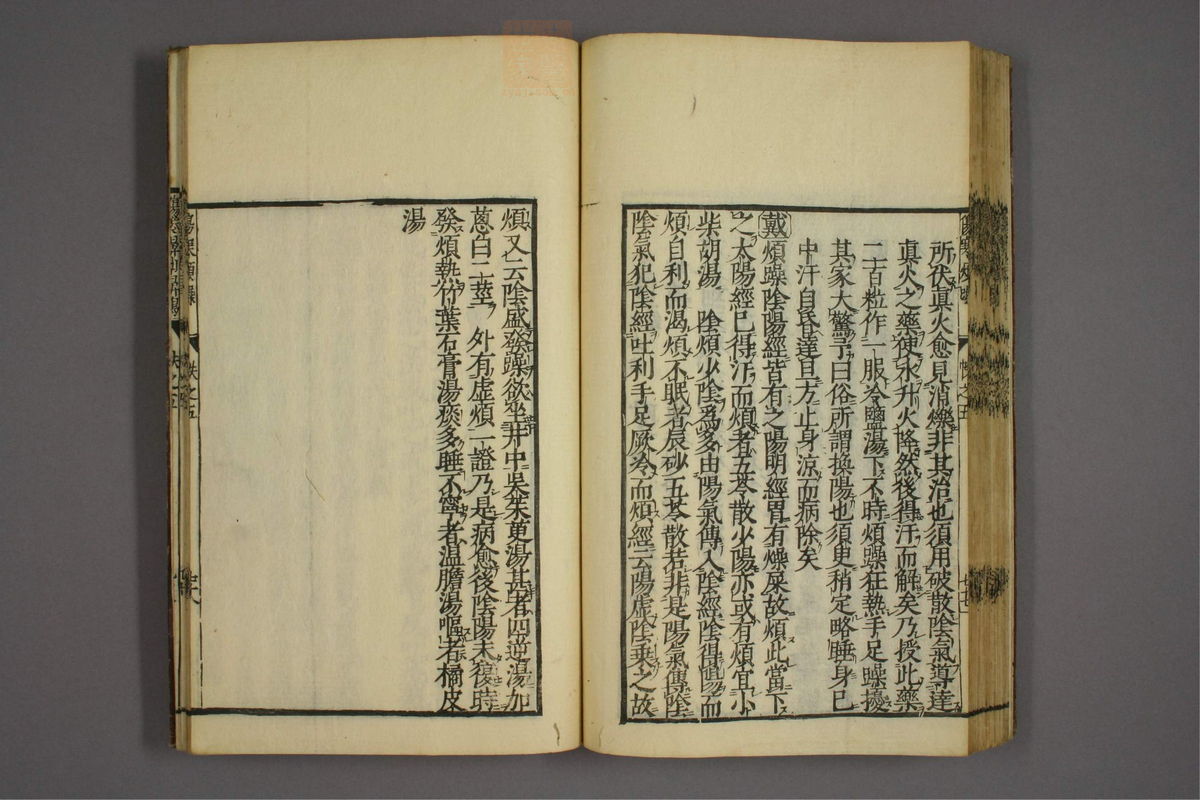 所伏真火愈見消爍非其治也須用破散陰氣導達
真火之藥使水升火降然後得汗而解矣乃授此藥
二百粒作一服冷鹽湯下不時煩躁狂熱手足躁擾
其家大驚予曰俗所謂換陽也須更稍定略睡身已
中汗自昏達旦方止身涼而病除矣
戴煩躁陰陽經皆有之陽明經胃有燥屎故煩此當下
之太陽經已得汗而煩者五苓散少陽亦或有煩宜小
柴胡湯 陰煩少陰爲多由陽氣傳入陰經陰得陽而
煩自利而渴煩不眠者辰砂五苓散若非是陽氣傳陰
陰氣犯陰經吐利手足厥冷而煩經云陽虛陰乘之故
煩又云陰盛發躁欲坐井中吳茱萸湯甚者四逆湯加
葱白二莖 外有虛煩一證乃是病愈後陰陽未復時
發煩熱竹葉石膏湯痰多睡不寧者温膽湯嘔者橘皮
湯